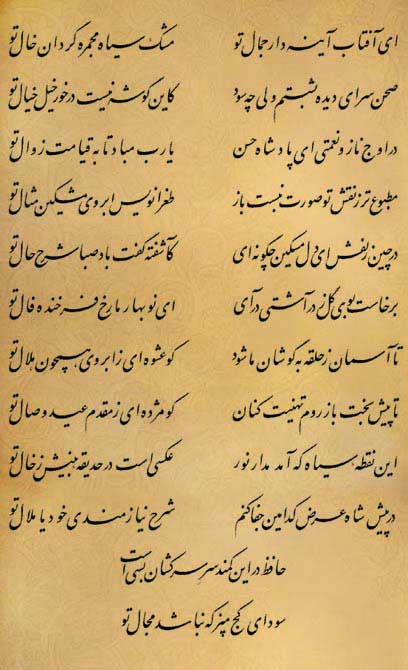 ای آفتاب آینه دار جمال تو مشک سیاه مجمره گردان خال تو
صحن سرای دیده بشستم ولی چه سود کاین گوشه نیست درخور خیل خیال تو
در اوج ناز و نعمتی ای پادشاه حسن یارب مباد تا به قیامت زوال تو
مطبوع تر ز نقش تو صورت نبست باز طغرانویس ابروی مشکین مثال تو
در چین زلفش ای دل مسکین چگونه ای کآشفته گفت باد صبا شرح حال تو
برخاست بوی گل ز در آشتی درآی ای نوبهار ما رخ فرخنده فال تو
تا آسمان ز حلقه به گوشان ما شود کو عشوه ای ز ابروی همچون هلال تو
تا پیش بخت باز روم تهنیت کنان کو مژده ای ز مقدم عید وصال تو
این نقطه سیاه که آمد مدار نور عکسی است در حدیقه بینش ز خال تو
در پیش شاه عرض کدامین جفا کنم شرح نیازمندی خود یا ملال تو
حافظ در این کمند سر سرکشان بسی است
سودای کج مپز که نباشد مجال تو